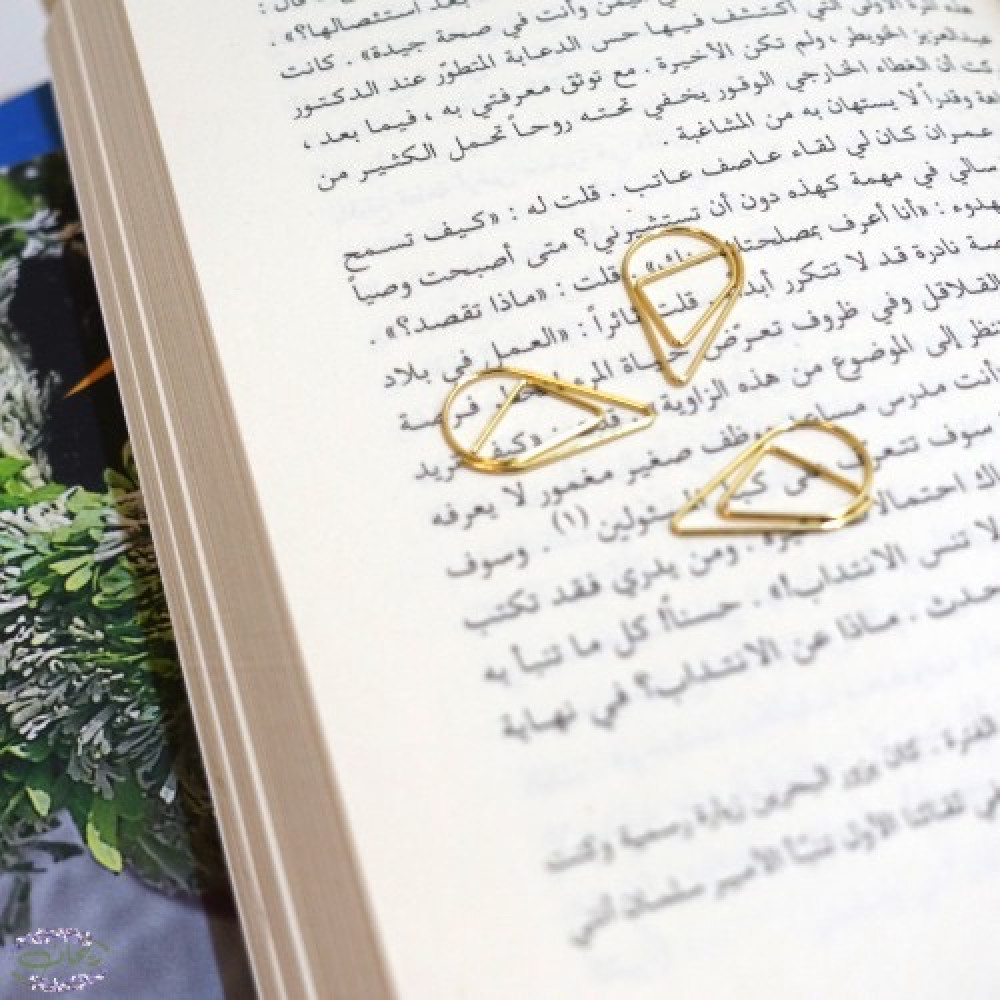 بعد استئصالها؟» . قال :
هذه المرة الأولى التي اكتشف فيها وأنت في صحة جيدة» . كانت
عبدالعزيز الخويطر ، ولم تكن الأخيرة . حس الدعابة المتطور عند الدكتور
أن الغطاء الخارجي الوقور يخفي مع توثق معرفتي به ، فيما بعد ،
وقدراً لا يستهان به من المشاغبة . تحته روحاً تحمل الكثير من
عمران كان لي لقاء عاصف عاتب . قلت له : «كيف تسمح
في مهمة كهذه دون أن تستشيرني؟ متى أصبحت وصياً
«أنا أعرف بمصلحتك قلت : «ماذا تقصد؟» .
نادرة قد لا تتكرر قلت ثائراً : «العمل في بلاد
القلاقل وفي ظروف تعرّض حياة فرصة
إلى الموضوع من هذه الزاوية «كيف تريد
وأنت مدرس مساعد وموظف صغير مغمور لا يعرفه
سوف تتعرف كبار المسئولين (١) . وسوف
احتمالات . ومن يدري فقد تكتب
لا تنس الانتداب!» . حسناً! كل ما تنبأ به
حدث . ماذا عن الانتداب؟ في نهاية
الفترة . كان يزور البحرين زيارة رسمية وكنت
في لقائنا الأول تنبأ الأمير سلمان أنني
ريحان